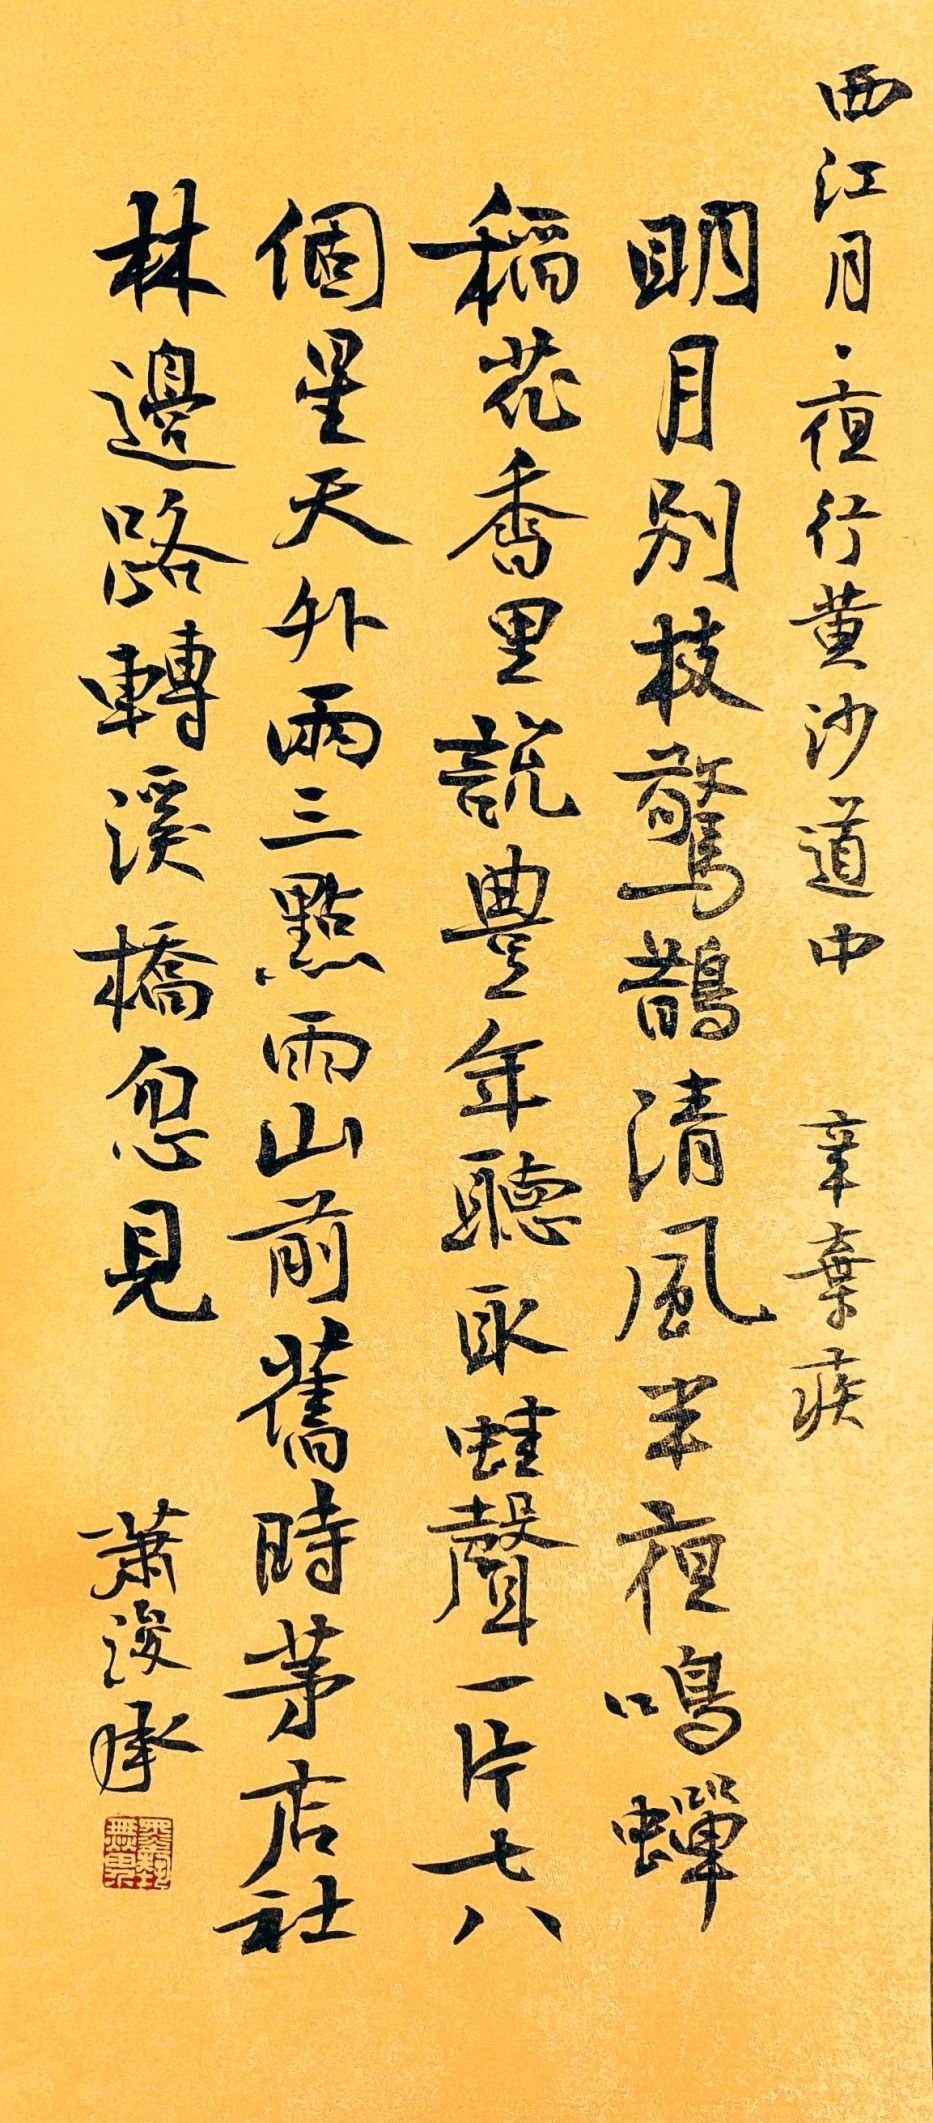 西江月·夜行黄沙道中 辛棄疾
明月别枝驚鵲清風半夜鳴蟬
稻花香里說豊年聽取蛙聲一片七八
個星天外兩三點雨山前舊時茅店社
林邊路轉溪橋忽見
蕭浚承